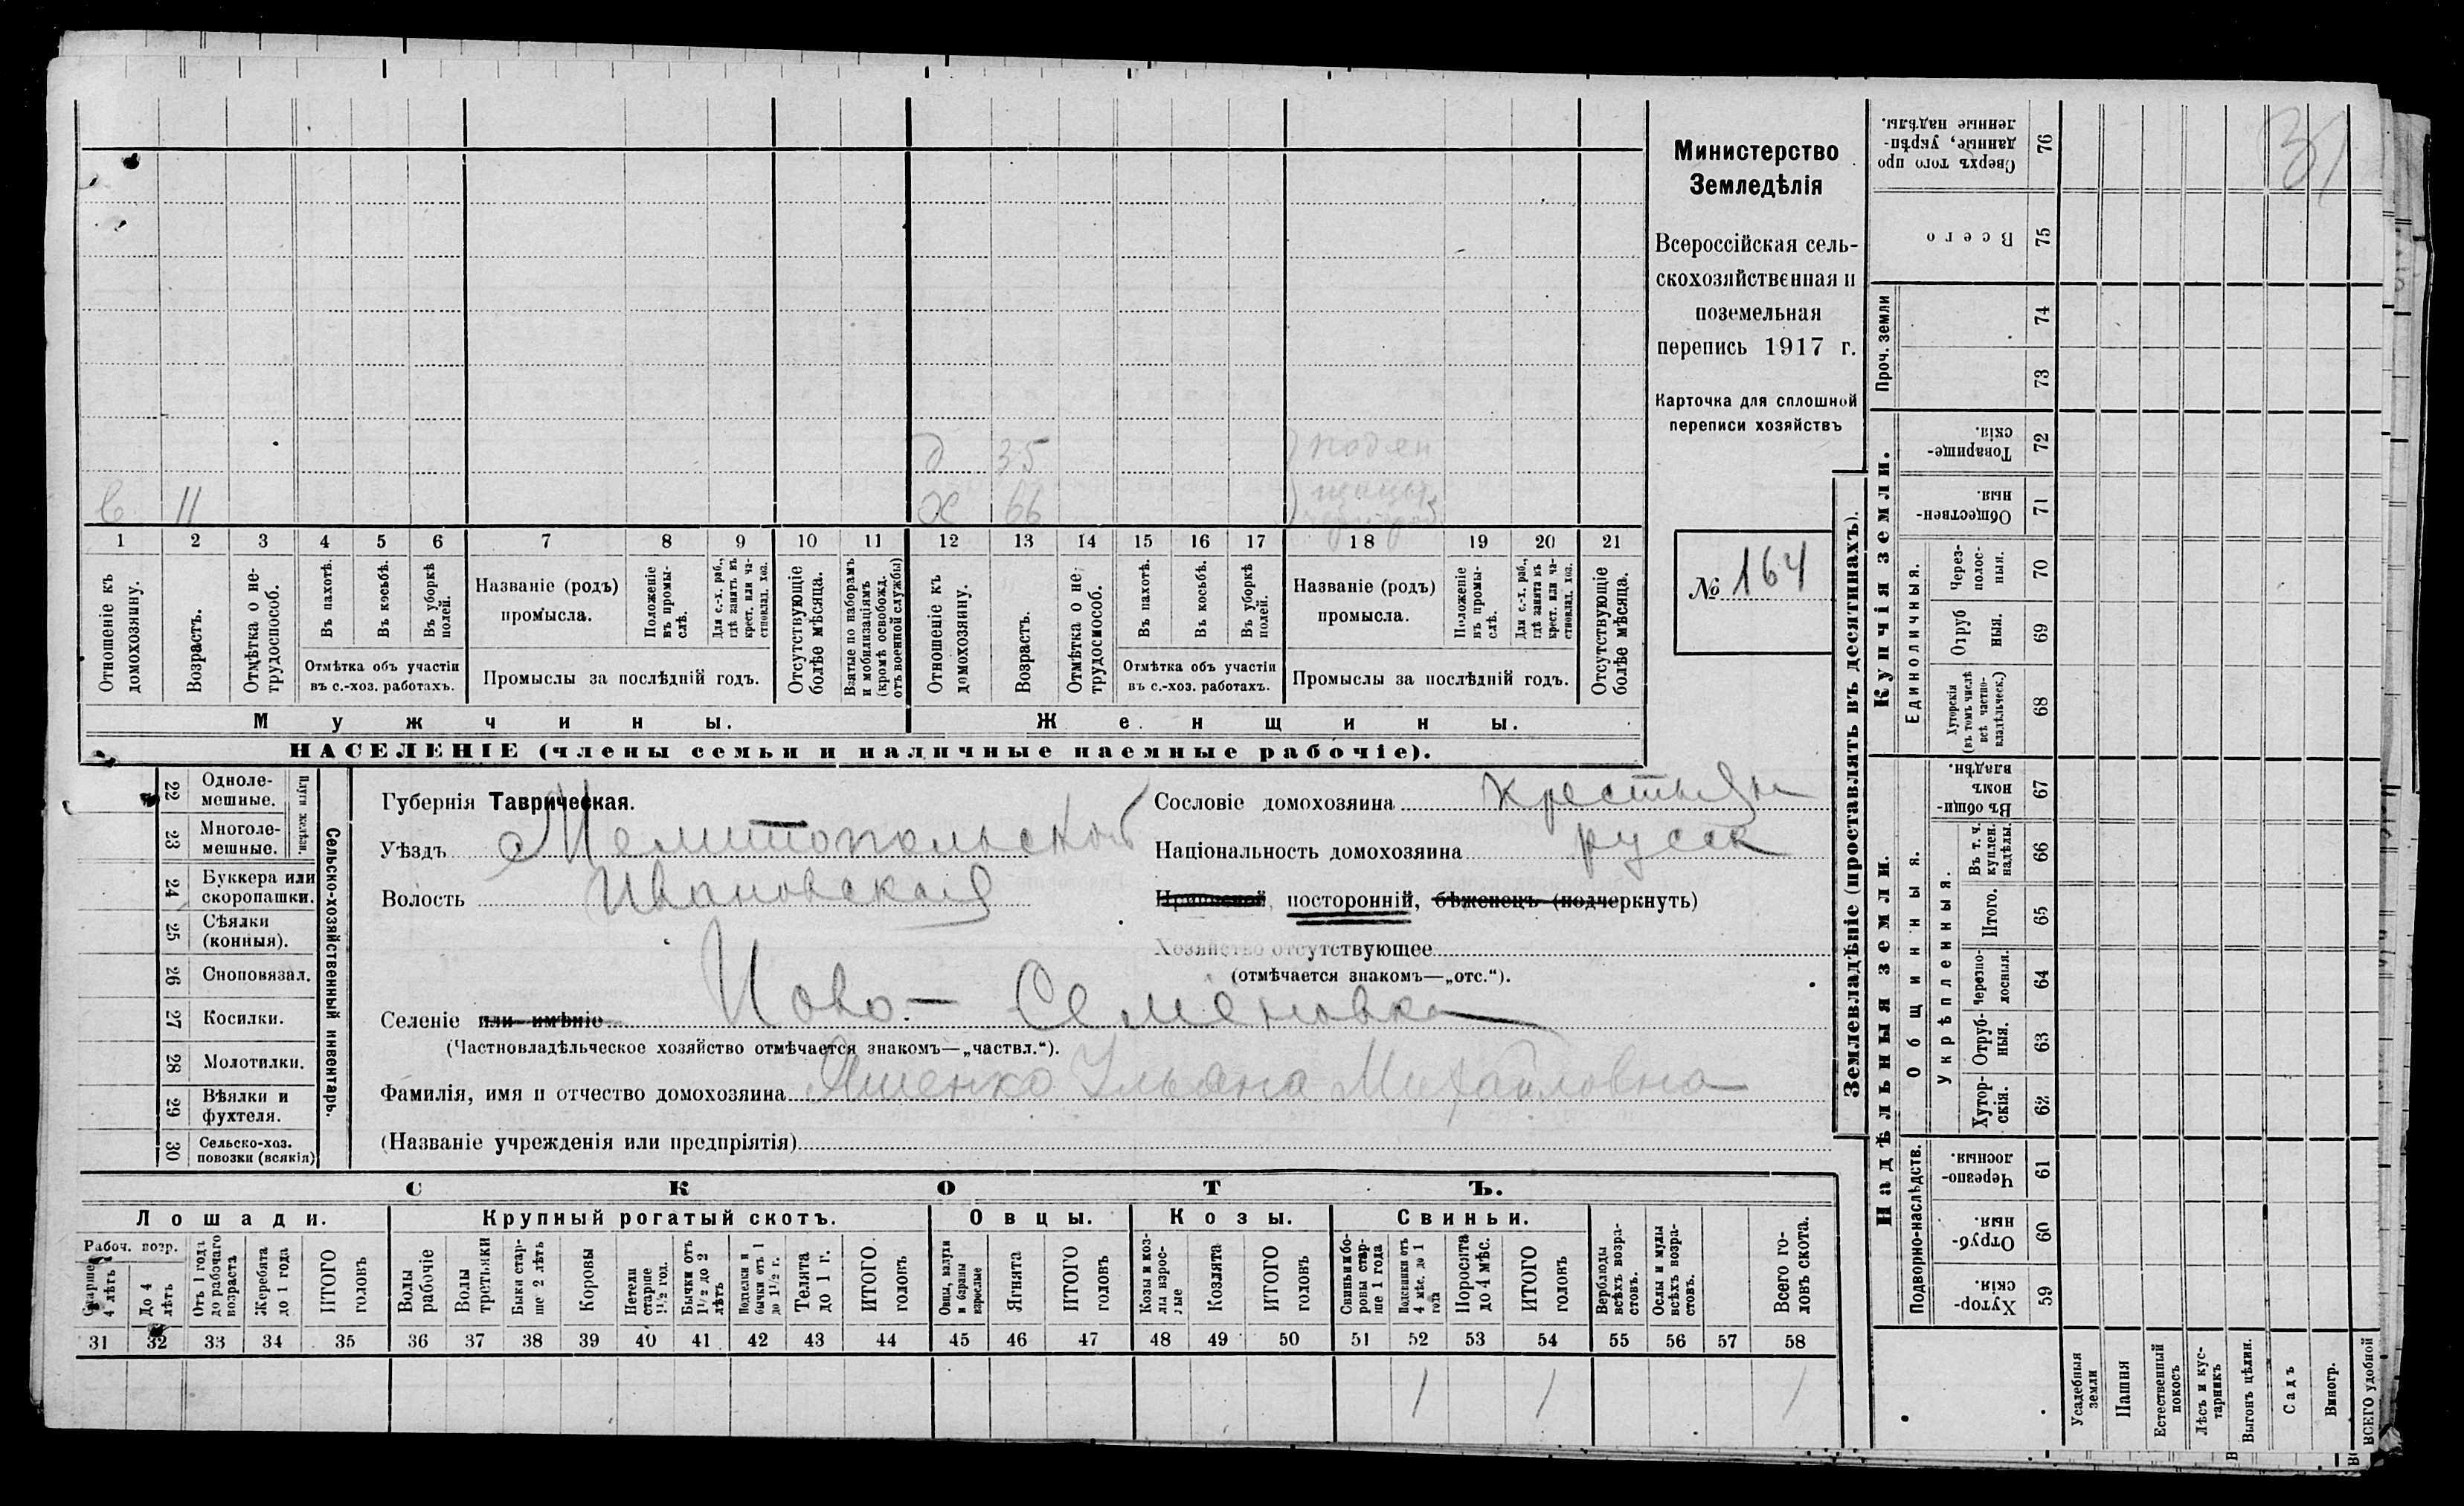 31
Министерство
Земледѣлія
Всероссійская сель-
скохозяйственная и
поземельная
перепись 1917 г.
Карточка для сплошной
переписи хозяйствъ
№ 164
д 35 поден
в 11 х 66 щицы
1 2 3 4 5 6 7 8 9 10 11 12 13 14 15 16 17 18 19 20 21
Отношеніе къ домохозяину.
Возрастъ.
Отмѣтка о не-трудоспособ.
Въ пахотѣ.
Въ косьбѣ.
Въ уборкѣ полей.
Отмѣтка объ участіи
въ с.-хоз. работахъ.
Названіе (родъ)
промысла.
Положеніе въ промы-слѣ.
Для с.-х. раб., гдѣ занятъ въ крест. или ча-стновлад. хоз.
Промыслы за послѣдній годъ.
Отсутствующіе болѣе мѣсяца.
Взятые по наборамъ и мобилизаціямъ (кромѣ освобожд. отъ военной службы)
Отношеніе къ домохозяину.
Возрастъ.
Отмѣтка о не трудоспособ.
Въ пахотѣ.
Въ косьбѣ.
Въ уборкѣ полей.
Отмѣтка объ участіи
въ с.-хоз. работахъ.
Названіе (родъ)
промысла.
Положеніе въ промы-слѣ.
Для с.-х. раб., гдѣ занята въ крест. или ча-стновлад. хоз.
Промыслы за послѣдній годъ.
Отсутствующіе болѣе мѣсяца.
Мужчины.
Женщины.
НАСЕЛЕНІЕ (члены семьи и наличные наемные рабочіе).
22 Одноле-мешные.
23 Многоле-мешные.
Плуги желѣзн.
24 Буккера или скоропашки.
25 Сѣялки (конныя).
26 Сноповязал.
27 Косилки.
28 Молотилки.
29 Вѣялки и фухтеля.
30 Сельско-хоз. повозки (всякія)
Сельско-хозяйственный инвентарь.
Губернія Таврическая.
Уѣздъ Мелитопольской
Волость Ивановская
Сословіе домохозяина крестьян
Національность домохозяина русск
посторонній, бѣженецъ (подчеркнуть)
Хозяйство отсутствующее
(отмѣчается знакомъ—„отс.“).
Селеніе или имѣніе Ново-Семеновка
(Частновладѣльческое хозяйство отмѣчается знакомъ—„частвл.“).
Фамилія, имя и отчество домохозяина Яшенко Ульяна Михайловна
(Названіе учрежденія или предпріятія)
СКОТЪ.
Лошади.
Крупный рогатый скотъ.
Овцы.
Козы.
Свиньи.
Рабоч. возр.
Старше 4 лѣтъ
До 4 лѣтъ
Отъ 1 года до рабочаго возраста
Жеребята до 1 года
ИТОГО головъ
Волы рабочіе
Волы третьяки
Быки стар-ше 2 лѣтъ
Коровы
Нетели старше 1½ год.
Бычки отъ 1½ до 2 лѣтъ
Подтелки и бычки отъ 1 до 1½ г.
Телята до 1 г.
ИТОГО головъ
Овцы, валухи и бараны взрослые
Ягнята
ИТОГО головъ
Козы и коз-лы взрос-лые
Козлята
ИТОГО головъ
Свиньи и бо-ровы стар-ше 1 года
Подсвинки отъ 4 мѣс. до 1 года
Поросята до 4 мѣс.
ИТОГО головъ
Верблюды всѣхъ возра-стовъ.
Ослы и мулы всѣхъ возра-стовъ.
Всего го-ловъ скота.
31 32 33 34 35 36 37 38 39 40 41 42 43 44 45 46 47 48 49 50 51 52 53 54 55 56 57 58
1 1 1
Землевладѣніе (проставлять въ десятинахъ).
Купчія земли.
Надѣльныя земли.
Сверхъ того про данные, укрѣп-ленные надѣлы. 76
Всего 75
Проч. земли
74
73
Товарище-скія. 72
Обществен-ныя. 71
Единоличныя.
Черезполос-ныя. 70
Отруб ныя. 69
Хуторскія (въ томъ числѣ всѣ частно-владѣльческ.) 68
Въ общи-номъ владѣн. 67
Общинныя.
Укрѣпленныя.
Въ т. ч. куплен. надѣлы. 66
Итого. 65
Черезпо-лосныя. 64
Отруб-ныя. 63
Хутор-скія. 62
Подворно-наслѣдств.
Черезпо-лосныя. 61
Отруб-ныя. 60
Хутор-скія. 59
Усадебныя земли
Пашня
Естественный покосъ
Лѣсъ и кус-тарникъ
Выгонъ цѣлин.
Садъ
Виногр.
ВСЕГО удобной